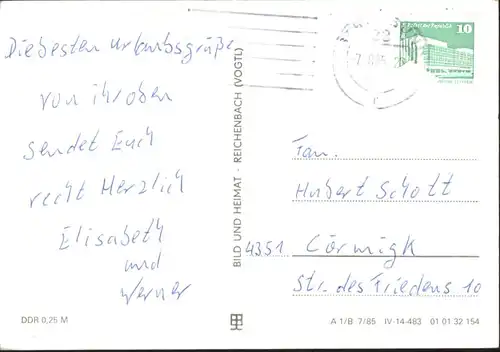 Die besten Urlaubsgrüße
von ihroben
sendet Euch
recht Herzlich
Elisabeth
und
Werner
DDR 0,25 M
BILD UND HEIMAT - REICHENBACH (VOGTL)
10
Fam.
Hubert Schott
4351 Cörmigk
Str. des Friedens 10
A 1/B 7/85 IV-14-483 01 01 32 154